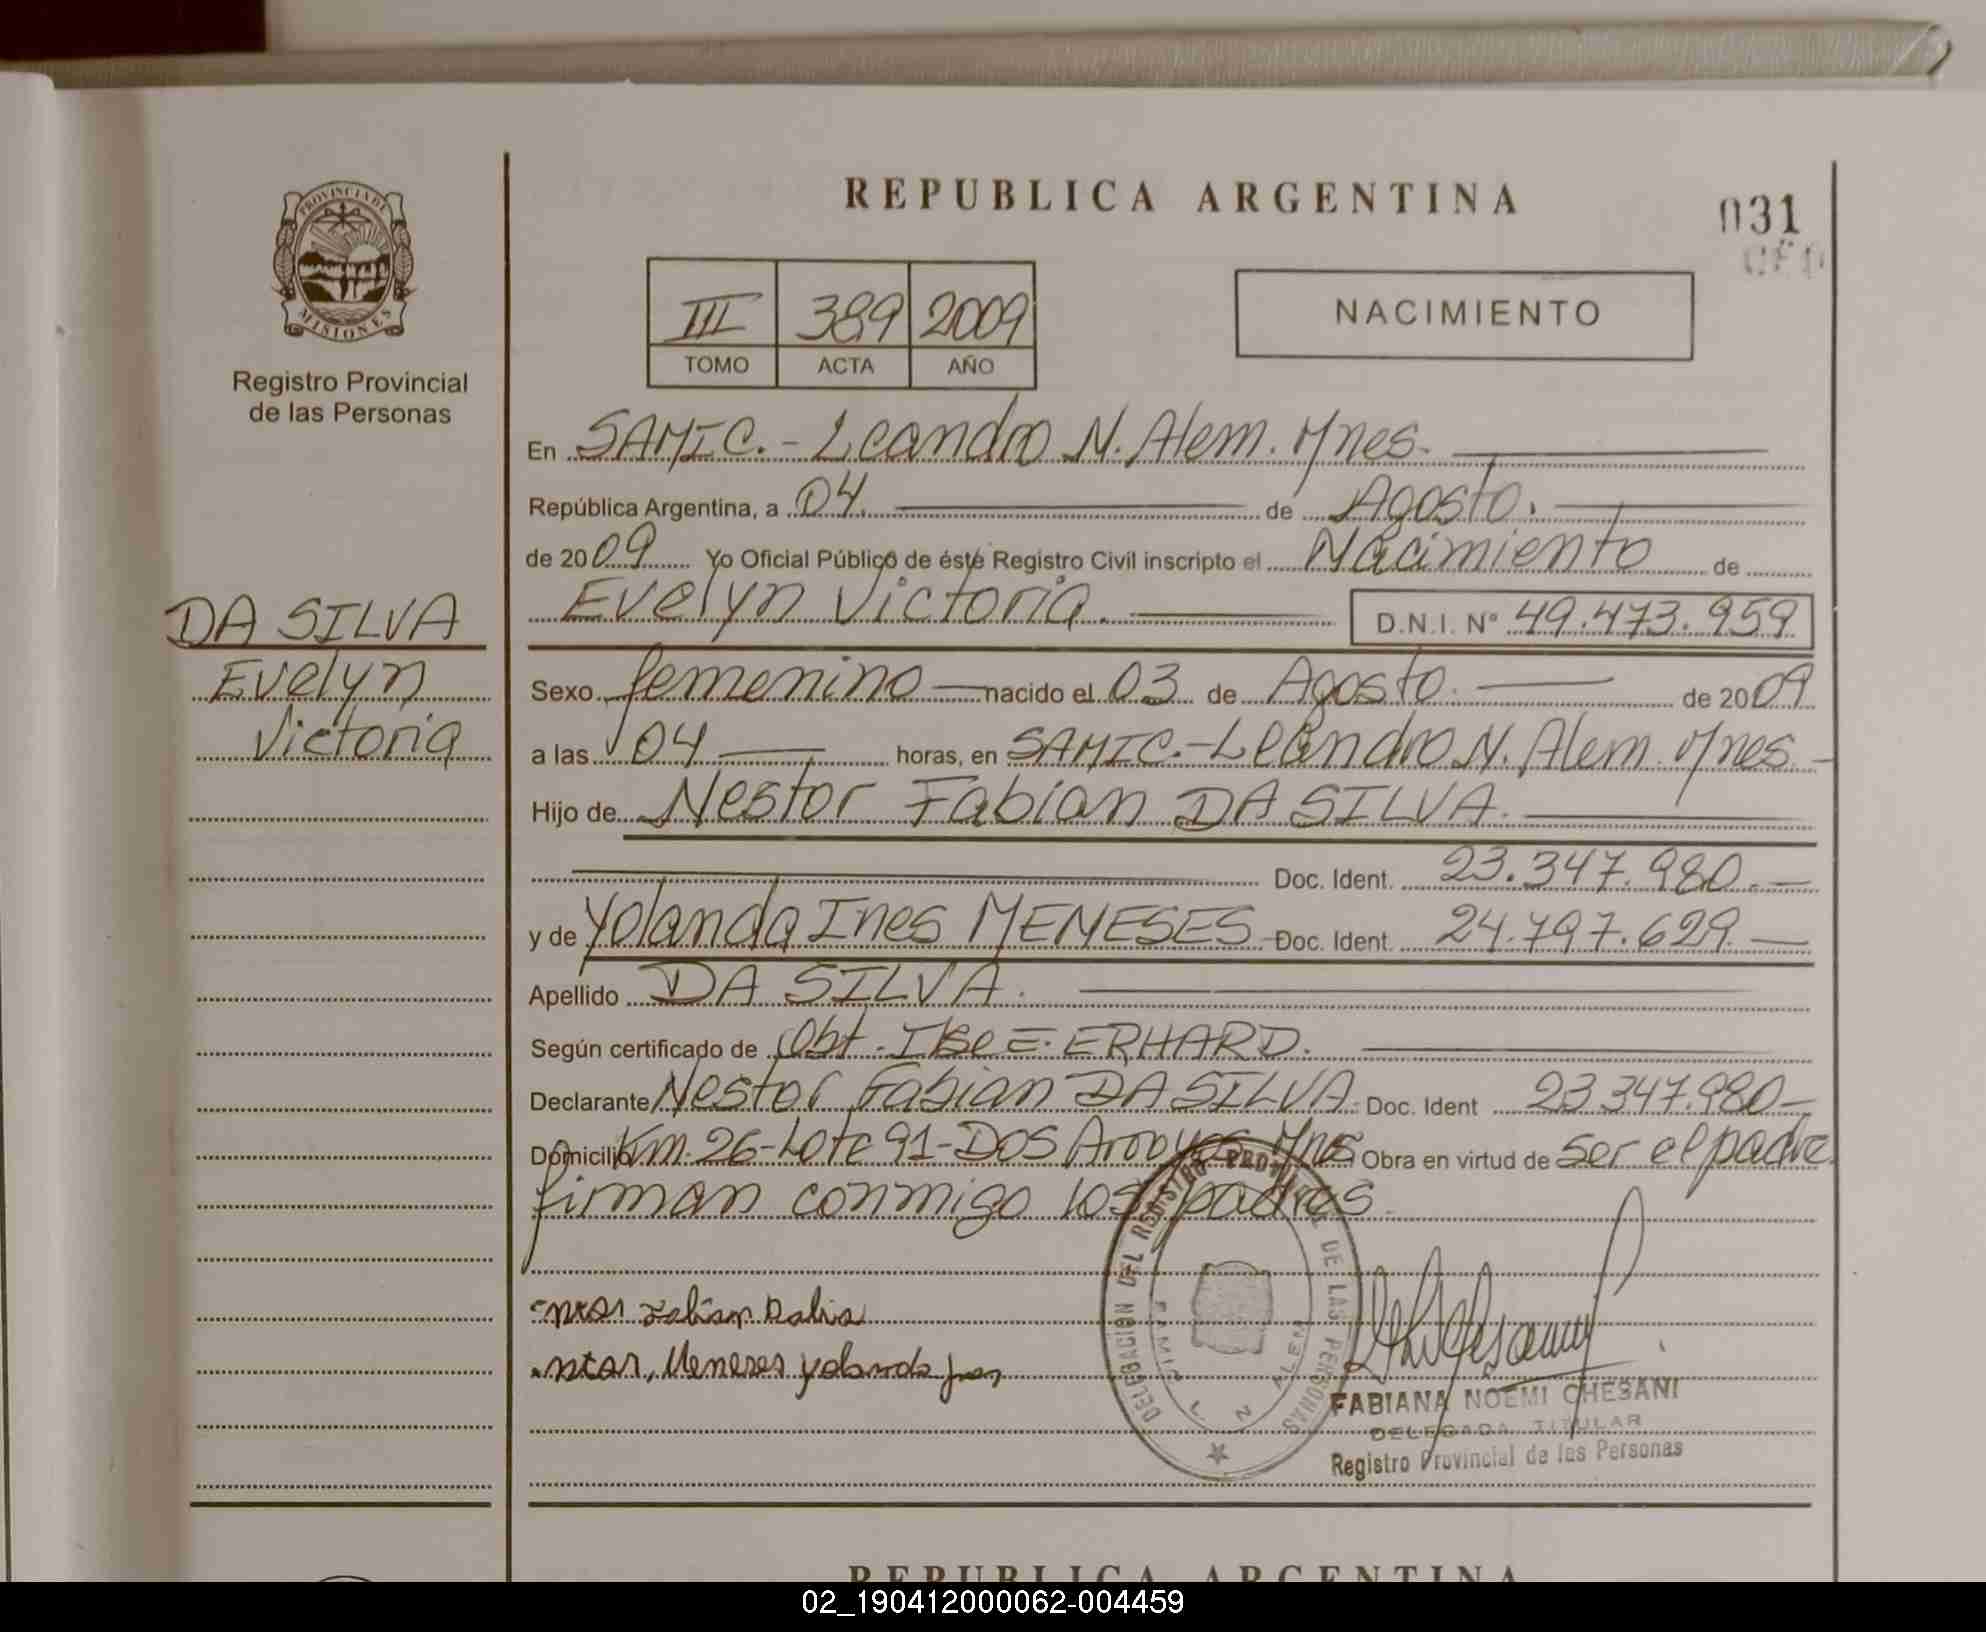 REPUBLICA ARGENTINA
031
PROVINCIA DE
MISIONES
Registro Provincial
de las Personas
III 389 2009
TOMO ACTA AÑO
NACIMIENTO
En SAMIC.- Leandro N. Alem. Mnes.
República Argentina, a 04. de Agosto.
de 2009 Yo Oficial Público de éste Registro Civil inscripto el Nacimiento de
Evelyn Victoria. D.N.I. N° 49.473.959
DA SILVA
Evelyn
Victoria
Sexo femenino nacido el 03 de Agosto. de 2009
a las 04 horas, en SAMIC.-Leandro N. Alem. Mnes.
Hijo de Nestor Fabian DA SILVA.
Doc. Ident. 23.347.980.-
y de Yolanda Ines MENESES Doc. Ident. 24.797.629.-
Apellido DA SILVA.
Según certificado de Obt. Ilse E. ERHARD.
Declarante Nestor Fabian DA SILVA. Doc. Ident 23 347.980-
Domicilio Km. 26-Lote 91-DOS Arroyos Mnes Obra en virtud de ser el padre
firman conmigo los padres.
Fabian
Meneses Yolanda
DELEGACION DEL REGISTRO PROVINCIAL DE LAS PERSONAS
SAMIC L. N. ALEM
FABIANA NOEMI CHESANI
DELEGADA TITULAR
Registro Provincial de las Personas
REPUBLICA ARGENTINA
02_190412000062-004459